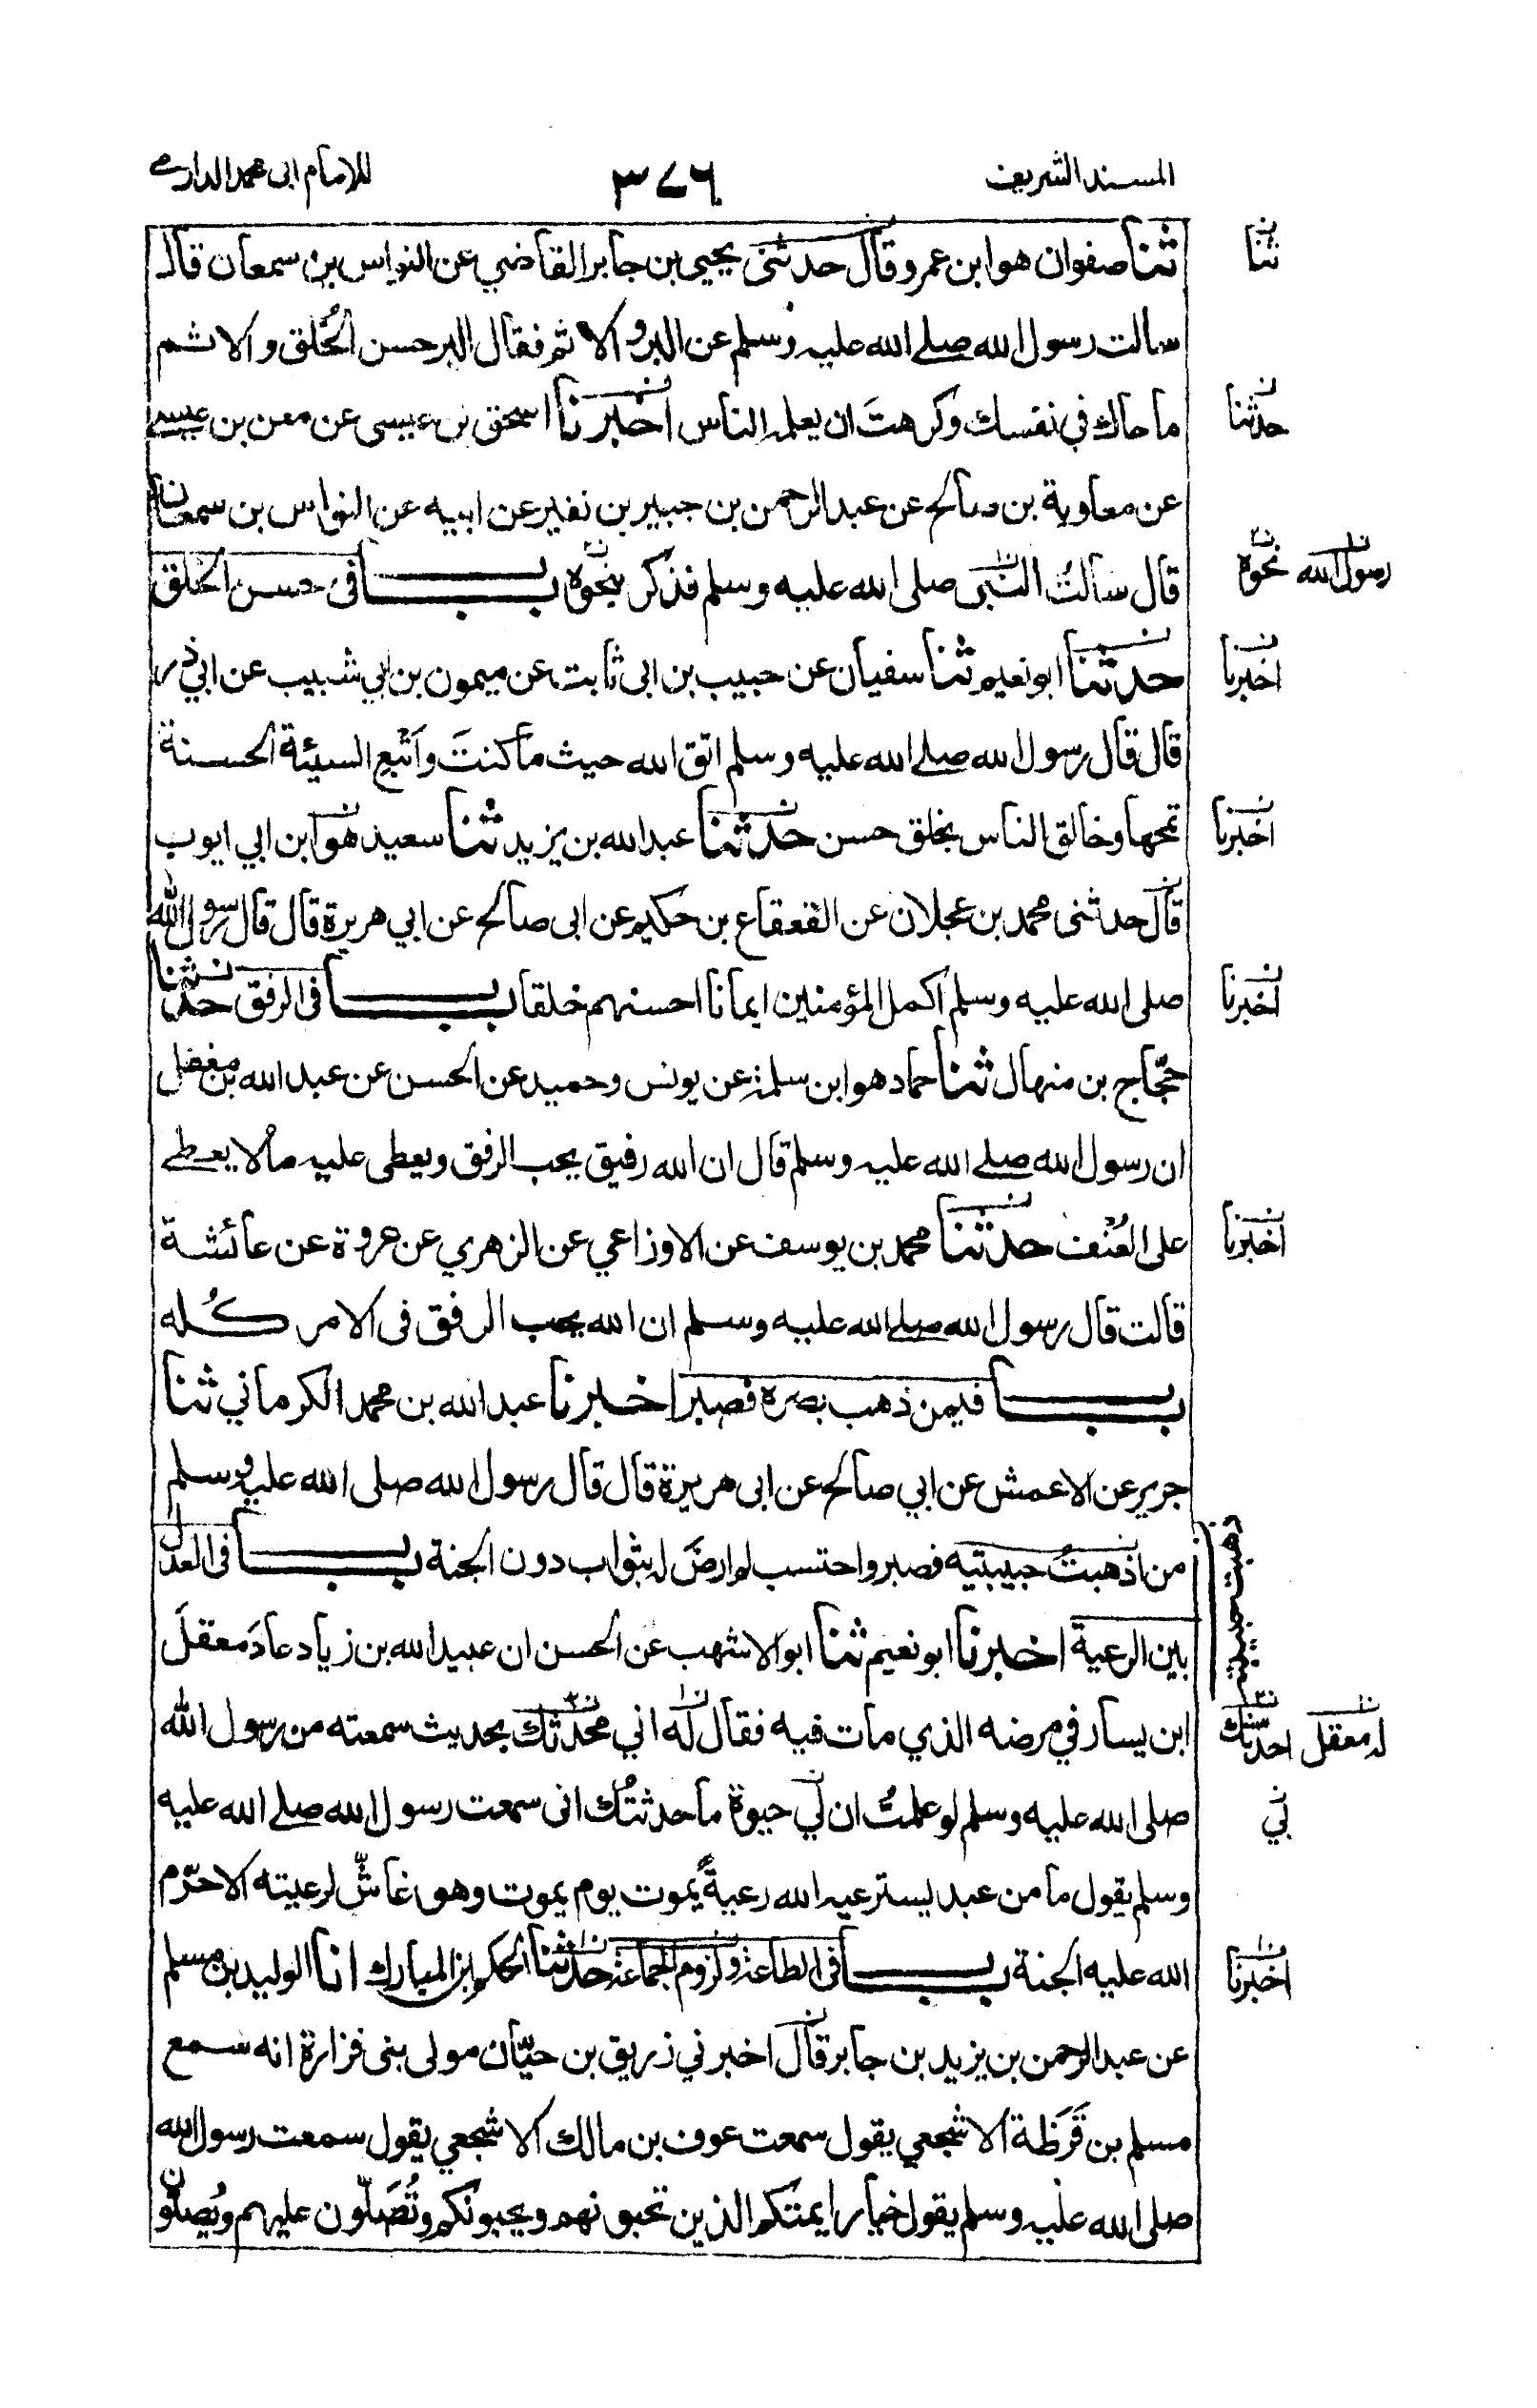 المسند الشريف ٣٧٦ للامام ابی محمد الدارمے
ثنا صفوان هو ابن عمرو قال حدثنی يحيی بن جابر القاضي عن النواس بن سمعان قال
سالت رسول الله صلے الله عليه وسلم عن البر والاثم فقال البر حسن الخُلق والاثم
ما حاك في نفسك وكرهتَ ان يعلمه الناس اخبرنا اسحق بن عيسی عن معن بن عيسے
عن معاوية بن صالح عن عبد الرحمن بن جبير بن نفير عن ابيه عن النواس بن سمعان
قال سالتُ النبی صلی الله عليه وسلم فذكر بنحوه باب فی حسن الخلق
حدثنا ابو نعيم ثنا سفيان عن حبيب بن ابی ثابت عن ميمون بن ابي شبيب عن ابي ذر
قال قال رسول الله صلے الله عليه وسلم اتق الله حيث ما كنتَ واَتْبعِ السيئة الحسنة
تمحها وخالق الناس بخلق حسن حدثنا عبد الله بن يزيد ثنا سعيد هو ابن ابي ايوب
قال حدثنی محمد بن عجلان عن القعقاع بن حكيم عن ابی صالح عن ابي هريرة قال قال رسول الله
صلی الله عليه وسلم اكمل المؤمنين ايمانا احسنهم خلقا باب فی الرفق حدثنا
حجّاج بن منهال ثنا حماد هو ابن سلمة عن يونس وحميد عن الحسن عن عبد الله بن مغفل
ان رسول الله صلے الله عليه وسلم قال ان الله رفيق يحب الرفق ويعطی عليه ما لا يعطے
علی العُنْف حدثنا محمد بن يوسف عن الاوزاعي عن الزهري عن عروة عن عائشة
قالت قال رسول الله صلے الله عليه وسلم ان الله يحب الرفق فی الامر كُله
باب فيمن ذهب بصره فصبر اخبرنا عبد الله بن محمد الكرماني ثنا
جرير عن الاعمش عن ابي صالح عن ابی هريرة قال قال رسول الله صلی الله عليه وسلم
من اذهبتُ حبيبتيه فصبر واحتسب لم ارضَ له بثواب دون الجنة باب فی العدل
بين الرعية اخبرنا ابو نعيم ثنا ابو الاشهب عن الحسن ان عبيد الله بن زياد عادَ معقلَ
ابن يسار في مرضه الذي مات فيه فقال له اني محدثك بحديث سمعته من رسول الله
صلی الله عليه وسلم لو علمتُ ان لي حيوة ما حدثتُك انی سمعت رسول الله صلے الله عليه
وسلم يقول ما من عبد يسترعيه الله رعيةً يموت يوم يموت وهو غاشٌّ لرعيته الا حرّم
الله عليه الجنة باب فی الطاعة ولزوم الجماعة حدثنا الحكم بن المبارك انا الوليد بن مسلم
عن عبد الرحمن بن يزيد بن جابر قال اخبرني زريق بن حيّان مولی بنی فزارة انه سمع
مسلم بن قَرَظة الاشجعي يقول سمعت عوف بن مالك الاشجعي يقول سمعت رسول الله
صلی الله عليه وسلم يقول خيار ايمتكم الذين تحبونهم ويحبونكم وتُصَلّون عليهم ويُصلّون
ثنا
حدثنا
رسول الله نحوه
اخبرنا
اخبرنا
اخبرنا
اخبرنا
ذهبت حبيبتيه
له معقل احدثك
بي
اخبرنا